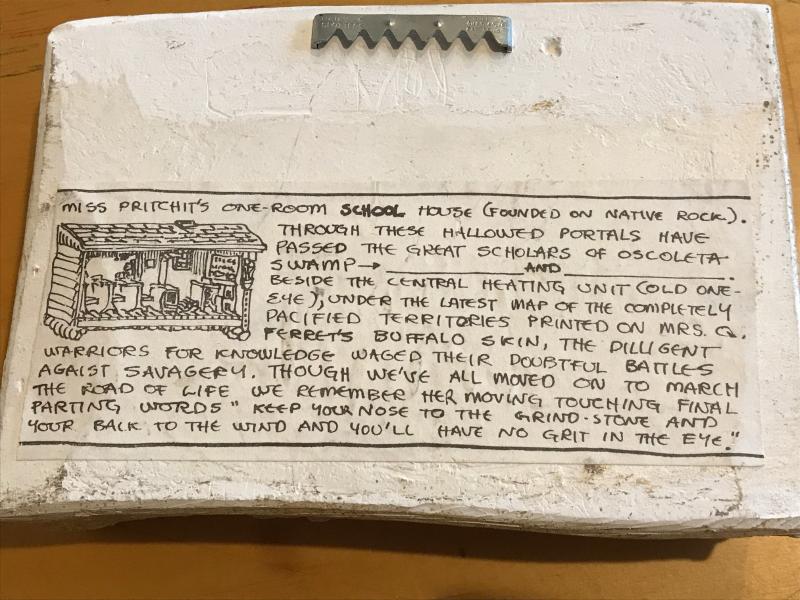 MISS PRITCHIT'S ONE-ROOM SCHOOL HOUSE (FOUNDED ON NATIVE ROCK).
THROUGH THESE HALLOWED PORTALS HAVE
PASSED THE GREAT SCHOLARS OF OSCOLETA
SWAMP→ ____________ AND ____________.
BESIDE THE CENTRAL HEATING UNIT (OLD ONE-
EYE), UNDER THE LATEST MAP OF THE COMPLETELY
PACIFIED TERRITORIES PRINTED ON MRS. Q.
FERRET'S BUFFALO SKIN, THE DILLIGENT
WARRIORS FOR KNOWLEDGE WAGED THEIR DOUBTFUL BATTLES
AGAIST SAVAGERY. THOUGH WE'VE ALL MOVED ON TO MARCH
THE ROAD OF LIFE WE REMEMBER HER MOVING TOUCHING FINAL
PARTING WORDS "KEEP YOUR NOSE TO THE GRIND-STONE AND
YOUR BACK TO THE WIND AND YOU'LL HAVE NO GRIT IN THE EYE."